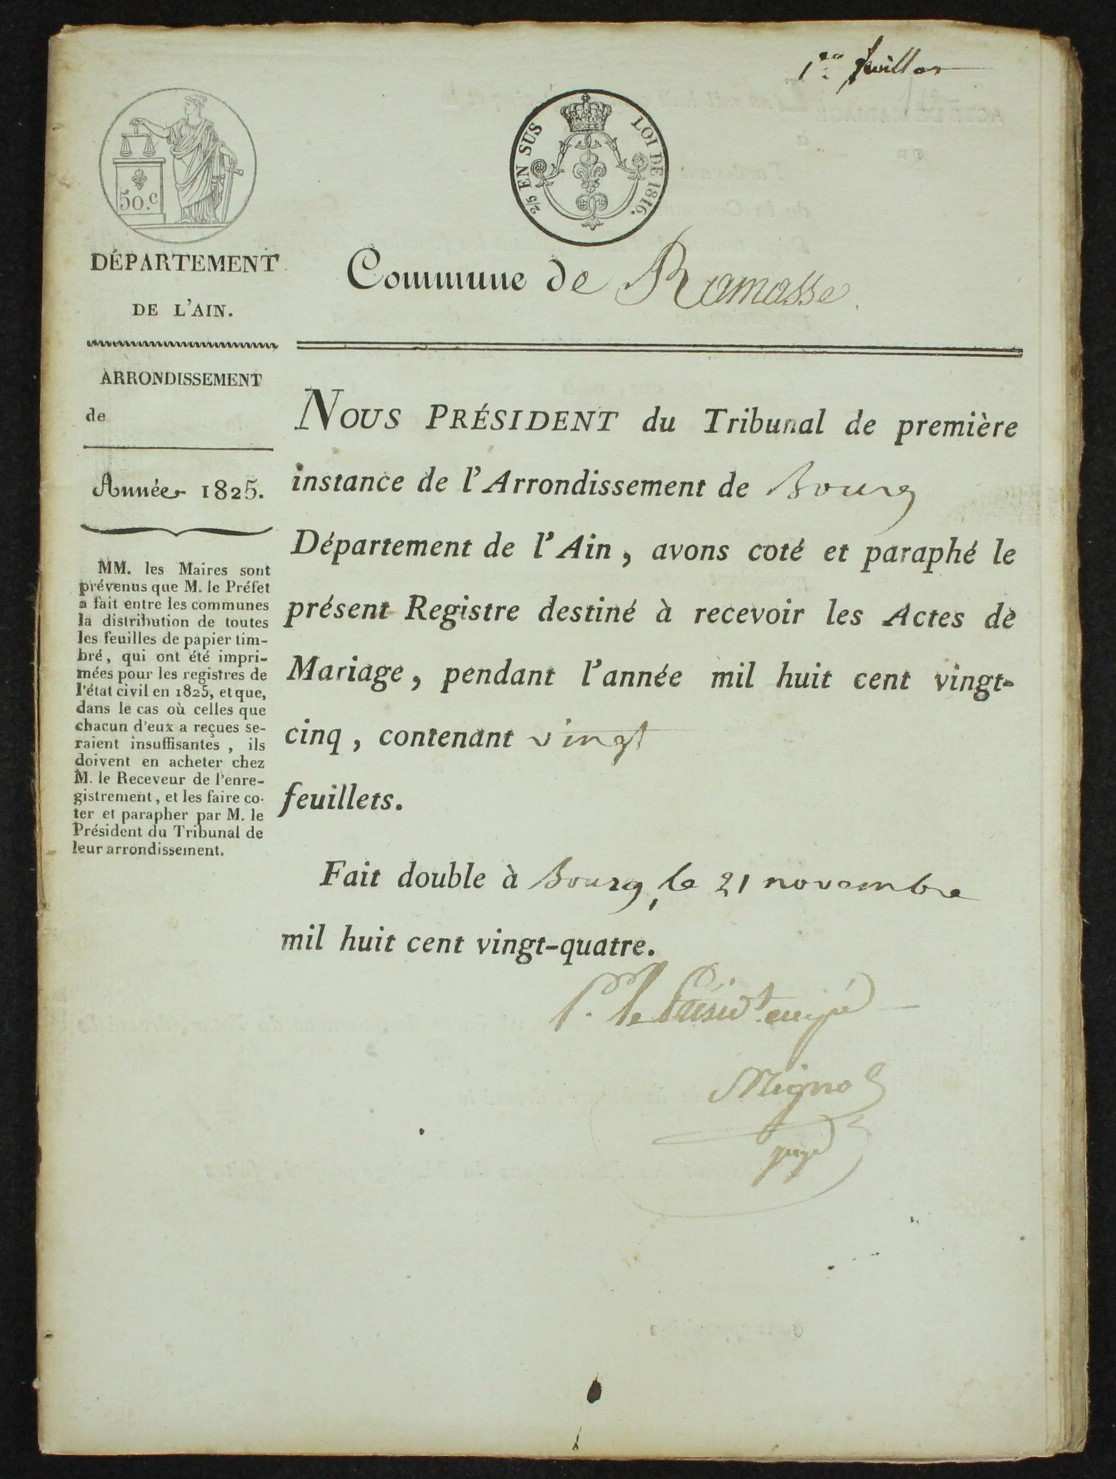 1er feuillet
50.c
2/5 EN SUS LOI DE 1816.
DÉPARTEMENT
DE L'AIN.
Commune de Ramasse.
ARRONDISSEMENT
de
Année 1825.
MM. les Maires sont
prévenus que M. le Préfet
a fait entre les communes
la distribution de toutes
les feuilles de papier tim-
bré, qui ont été impri-
mées pour les registres de
l'état civil en 1825, et que,
dans le cas où celles que
chacun d'eux a reçues se-
raient insuffisantes, ils
doivent en acheter chez
M. le Receveur de l'enre-
gistrement, et les faire co-
ter et parapher par M. le
Président du Tribunal de
leur arrondissement.
NOUS PRÉSIDENT du Tribunal de première
instance de l'Arrondissement de Bourg
Département de l'Ain, avons coté et paraphé le
présent Registre destiné à recevoir les Actes de
Mariage, pendant l'année mil huit cent vingt-
cinq, contenant vingt
feuillets.
Fait double à Bourg, le 21 novembre
mil huit cent vingt-quatre.
P. le Présidt